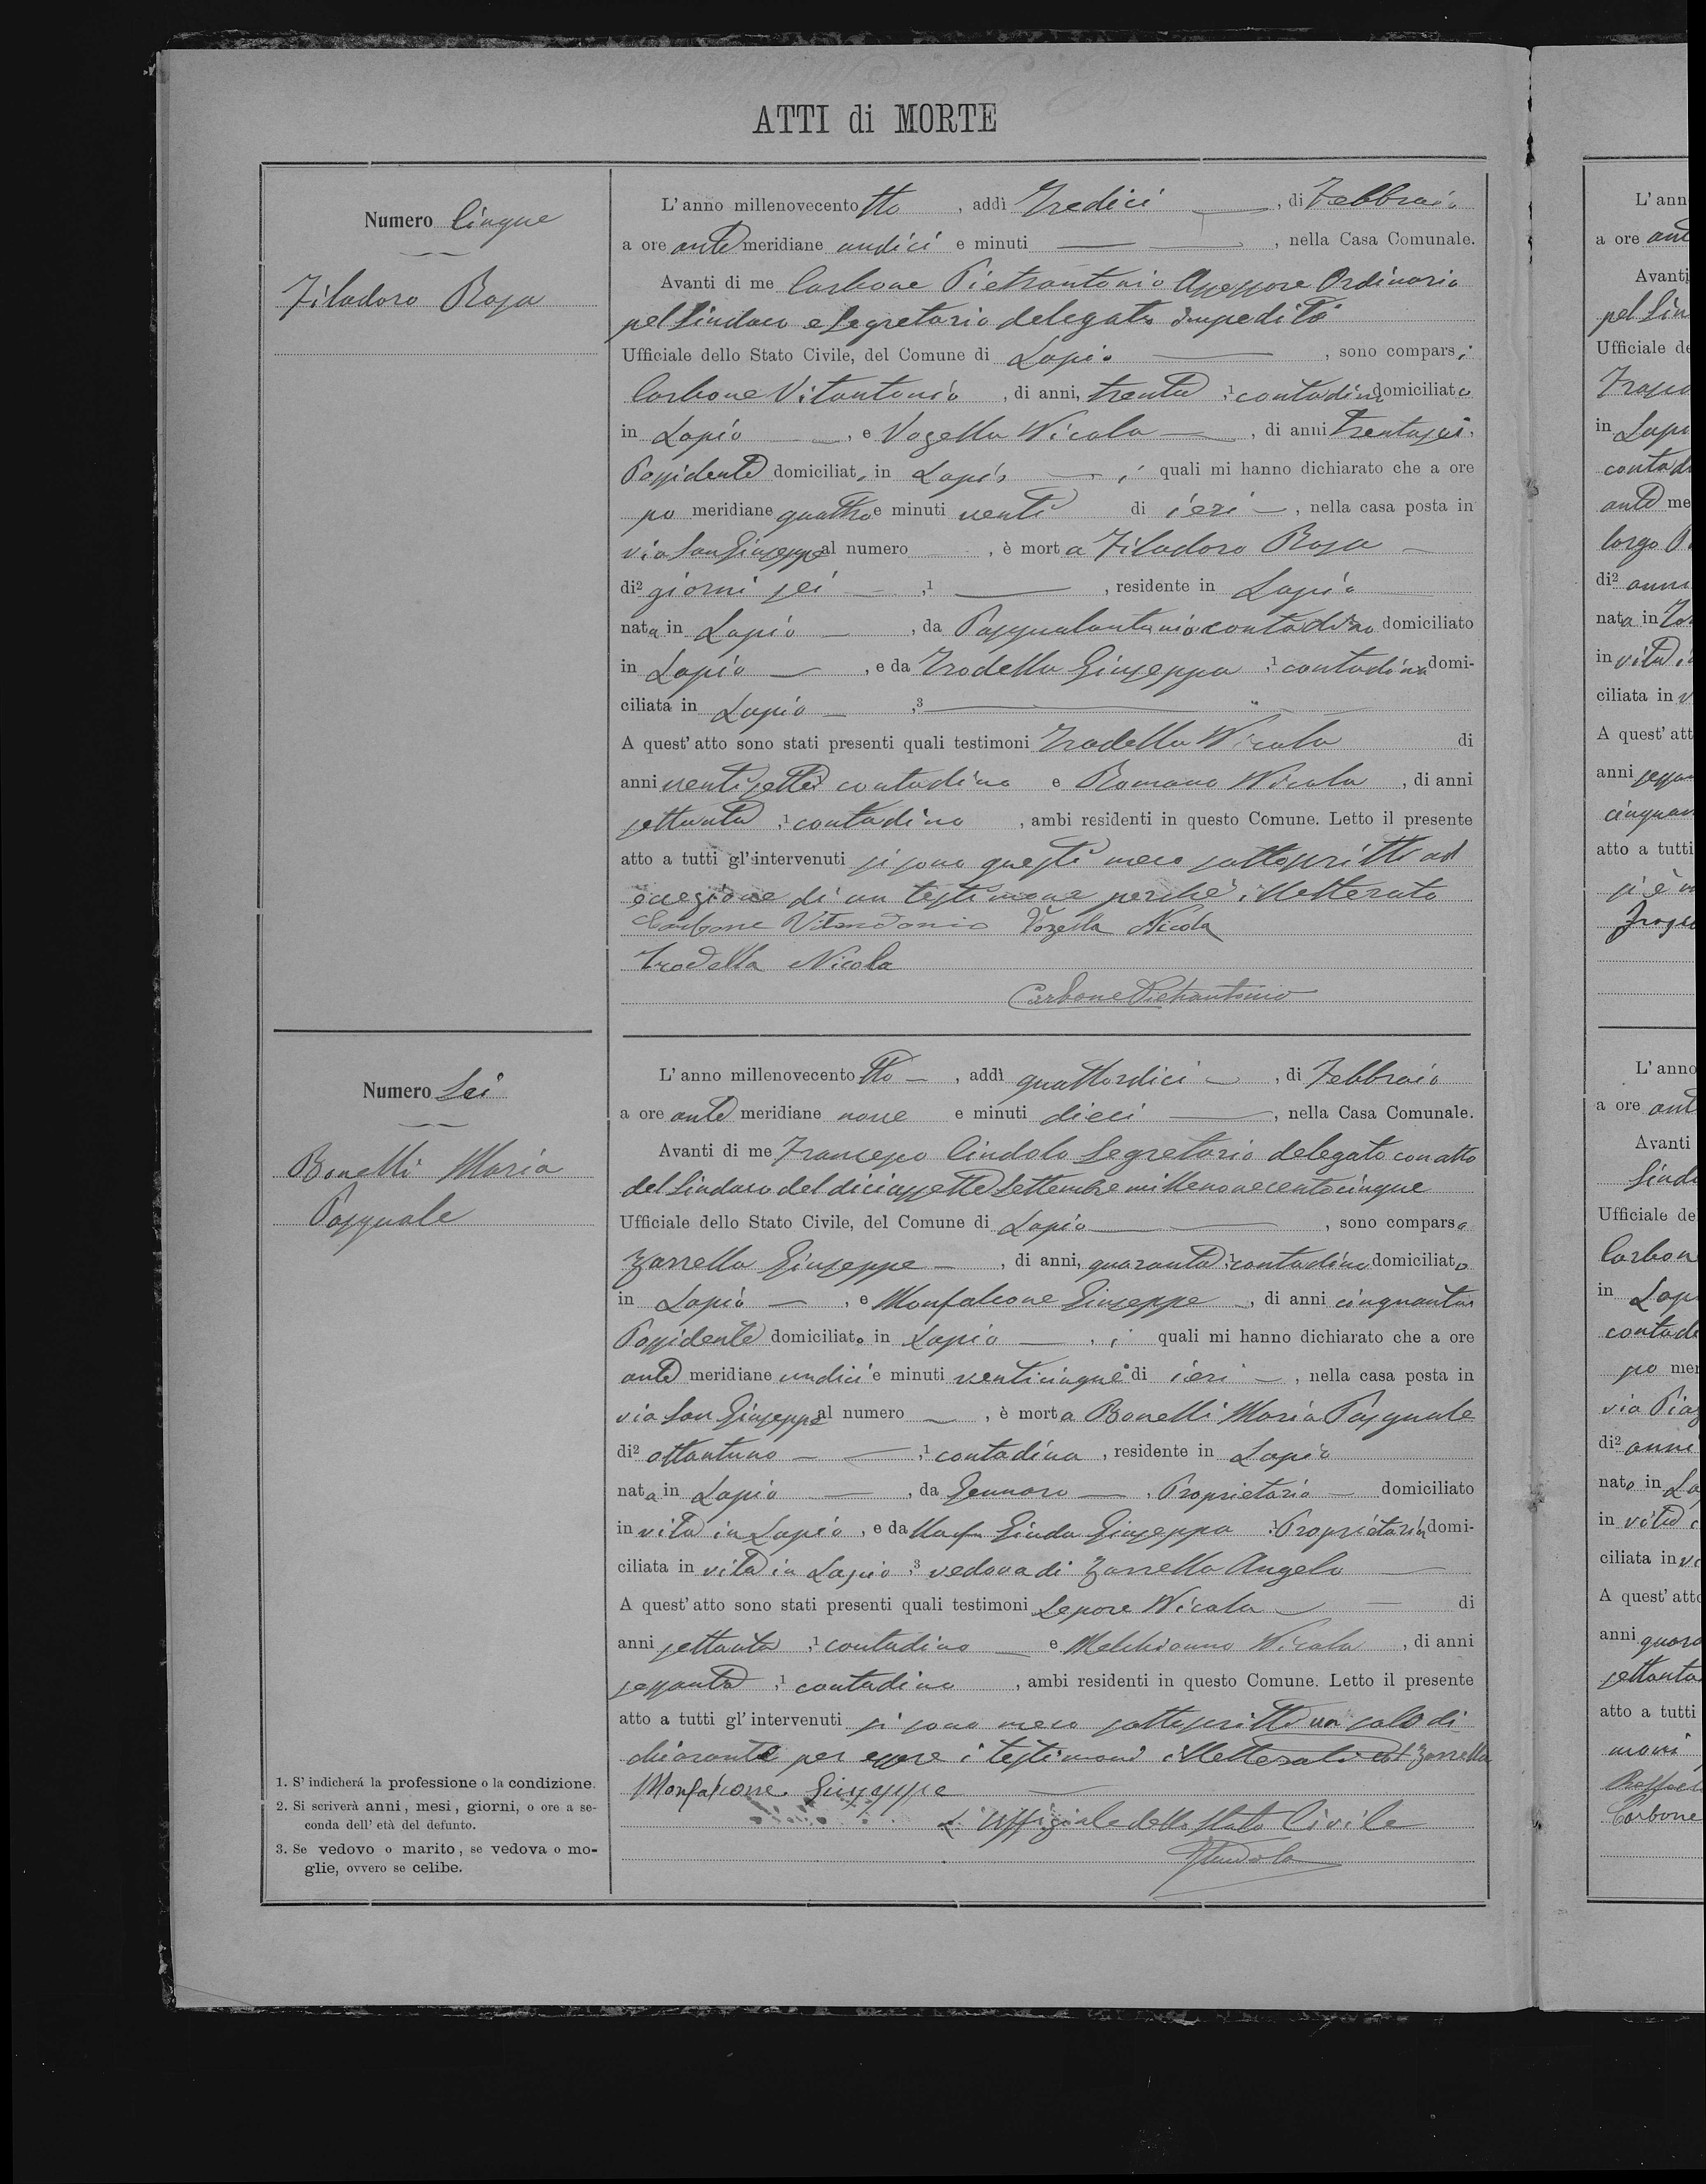 ATTI di MORTE
Numero Cinque
Filadoro Rosa
L'anno millenovecento tto, addì Tredici, di Febbraio
a ore ante meridiane undici e minuti —, nella Casa Comunale.
Avanti di me Carbone Pietrantonio Assessore Ordinario
pel Sindaco e Segretario delegato impediti
Ufficiale dello Stato Civile, del Comune di Lapio —, sono comparsi
Carbone Vitantonio, di anni, trenta, 1 contadino domiciliato
in Lapio —, e Vozella Nicola —, di anni trentasei,
Possidente domiciliat. in Lapio — i quali mi hanno dichiarato che a ore
po meridiane quattro e minuti venti di ieri —, nella casa posta in
via San Giuseppe al numero —, è morta Filadoro Rosa —
di2 giorni sei —,1 —, residente in Lapio
nata in Lapio —, da Pasqualantonio contadino domiciliato
in Lapio —, e da Trodella Giuseppa ,1 contadina domi-
ciliata in Lapio — ,3 —
A quest'atto sono stati presenti quali testimoni Trodella Nicola di
anni ventisette contadino e Romano Nicola, di anni
settanta ,1 contadino, ambi residenti in questo Comune. Letto il presente
atto a tutti gl'intervenuti si sono questi meco sottoscritti ad
eccezione di un testimone perchè illetterato
Carbone Vitantonio Vozella Nicola
Trodella Nicola
Carbone Pietrantonio
Numero Sei
Bonelli Maria
Pasquale
L'anno millenovecento tto —, addì quattordici —, di Febbraio
a ore ante meridiane nove e minuti dieci —, nella Casa Comunale.
Avanti di me Francesco Cindolo Segretario delegato con atto
del Sindaco del diciassette Settembre millenovecentocinque
Ufficiale dello Stato Civile, del Comune di Lapio —, sono comparso
Zarrella Giuseppe —, di anni, quaranta ,1 contadino domiciliato
in Lapio —, e Monfalcone Giuseppe —, di anni cinquantun
Possidente domiciliato in Lapio —, i quali mi hanno dichiarato che a ore
ante meridiane undici e minuti venticinque di ieri —, nella casa posta in
via San Giuseppe al numero —, è morta Bonelli Maria Pasquale
di2 ottantuno — ,1 contadina, residente in Lapio
nata in Lapio —, da Gennaro —, Proprietario — domiciliato
in vita in Lapio, e da Giuseppa ,1 Proprietaria domi-
ciliata in vita in Lapio ,3 vedova di Zarrella Angelo —
A quest'atto sono stati presenti quali testimoni Lepore Nicola — di
anni settanta ,1 contadino — e Melchionno Nicola, di anni
sessanta ,1 contadino, ambi residenti in questo Comune. Letto il presente
atto a tutti gl'intervenuti si sono meco sottoscritto un solo di
chiarante per essere i testimoni illetterati ed Zarrella
Monfalcone Giuseppe —
L'Uffiziale dello Stato Civile
FCindolo
1. S'indicherá la professione o la condizione.
2. Si scriverà anni, mesi, giorni, o ore a se-
conda dell'età del defunto.
3. Se vedovo o marito, se vedova o mo-
glie, ovvero se celibe.
L'ann
a ore ant
Avanti
pel Sin
Ufficiale de
in Lapi
contad
ante me
largo
di2 anni
nata in
in vita i
ciliata in v
A quest'att
anni sessan
cinquan
atto a tutti
si è
L'anno
a ore ant
Avanti
Sinda
Ufficiale de
Carbon
in Lap
contad
po mer
via Piaz
di2 anni
nato in La
in vita
ciliata in v
A quest'atto
anni quara
settanta
atto a tutti
moni
Raffael
Carbone